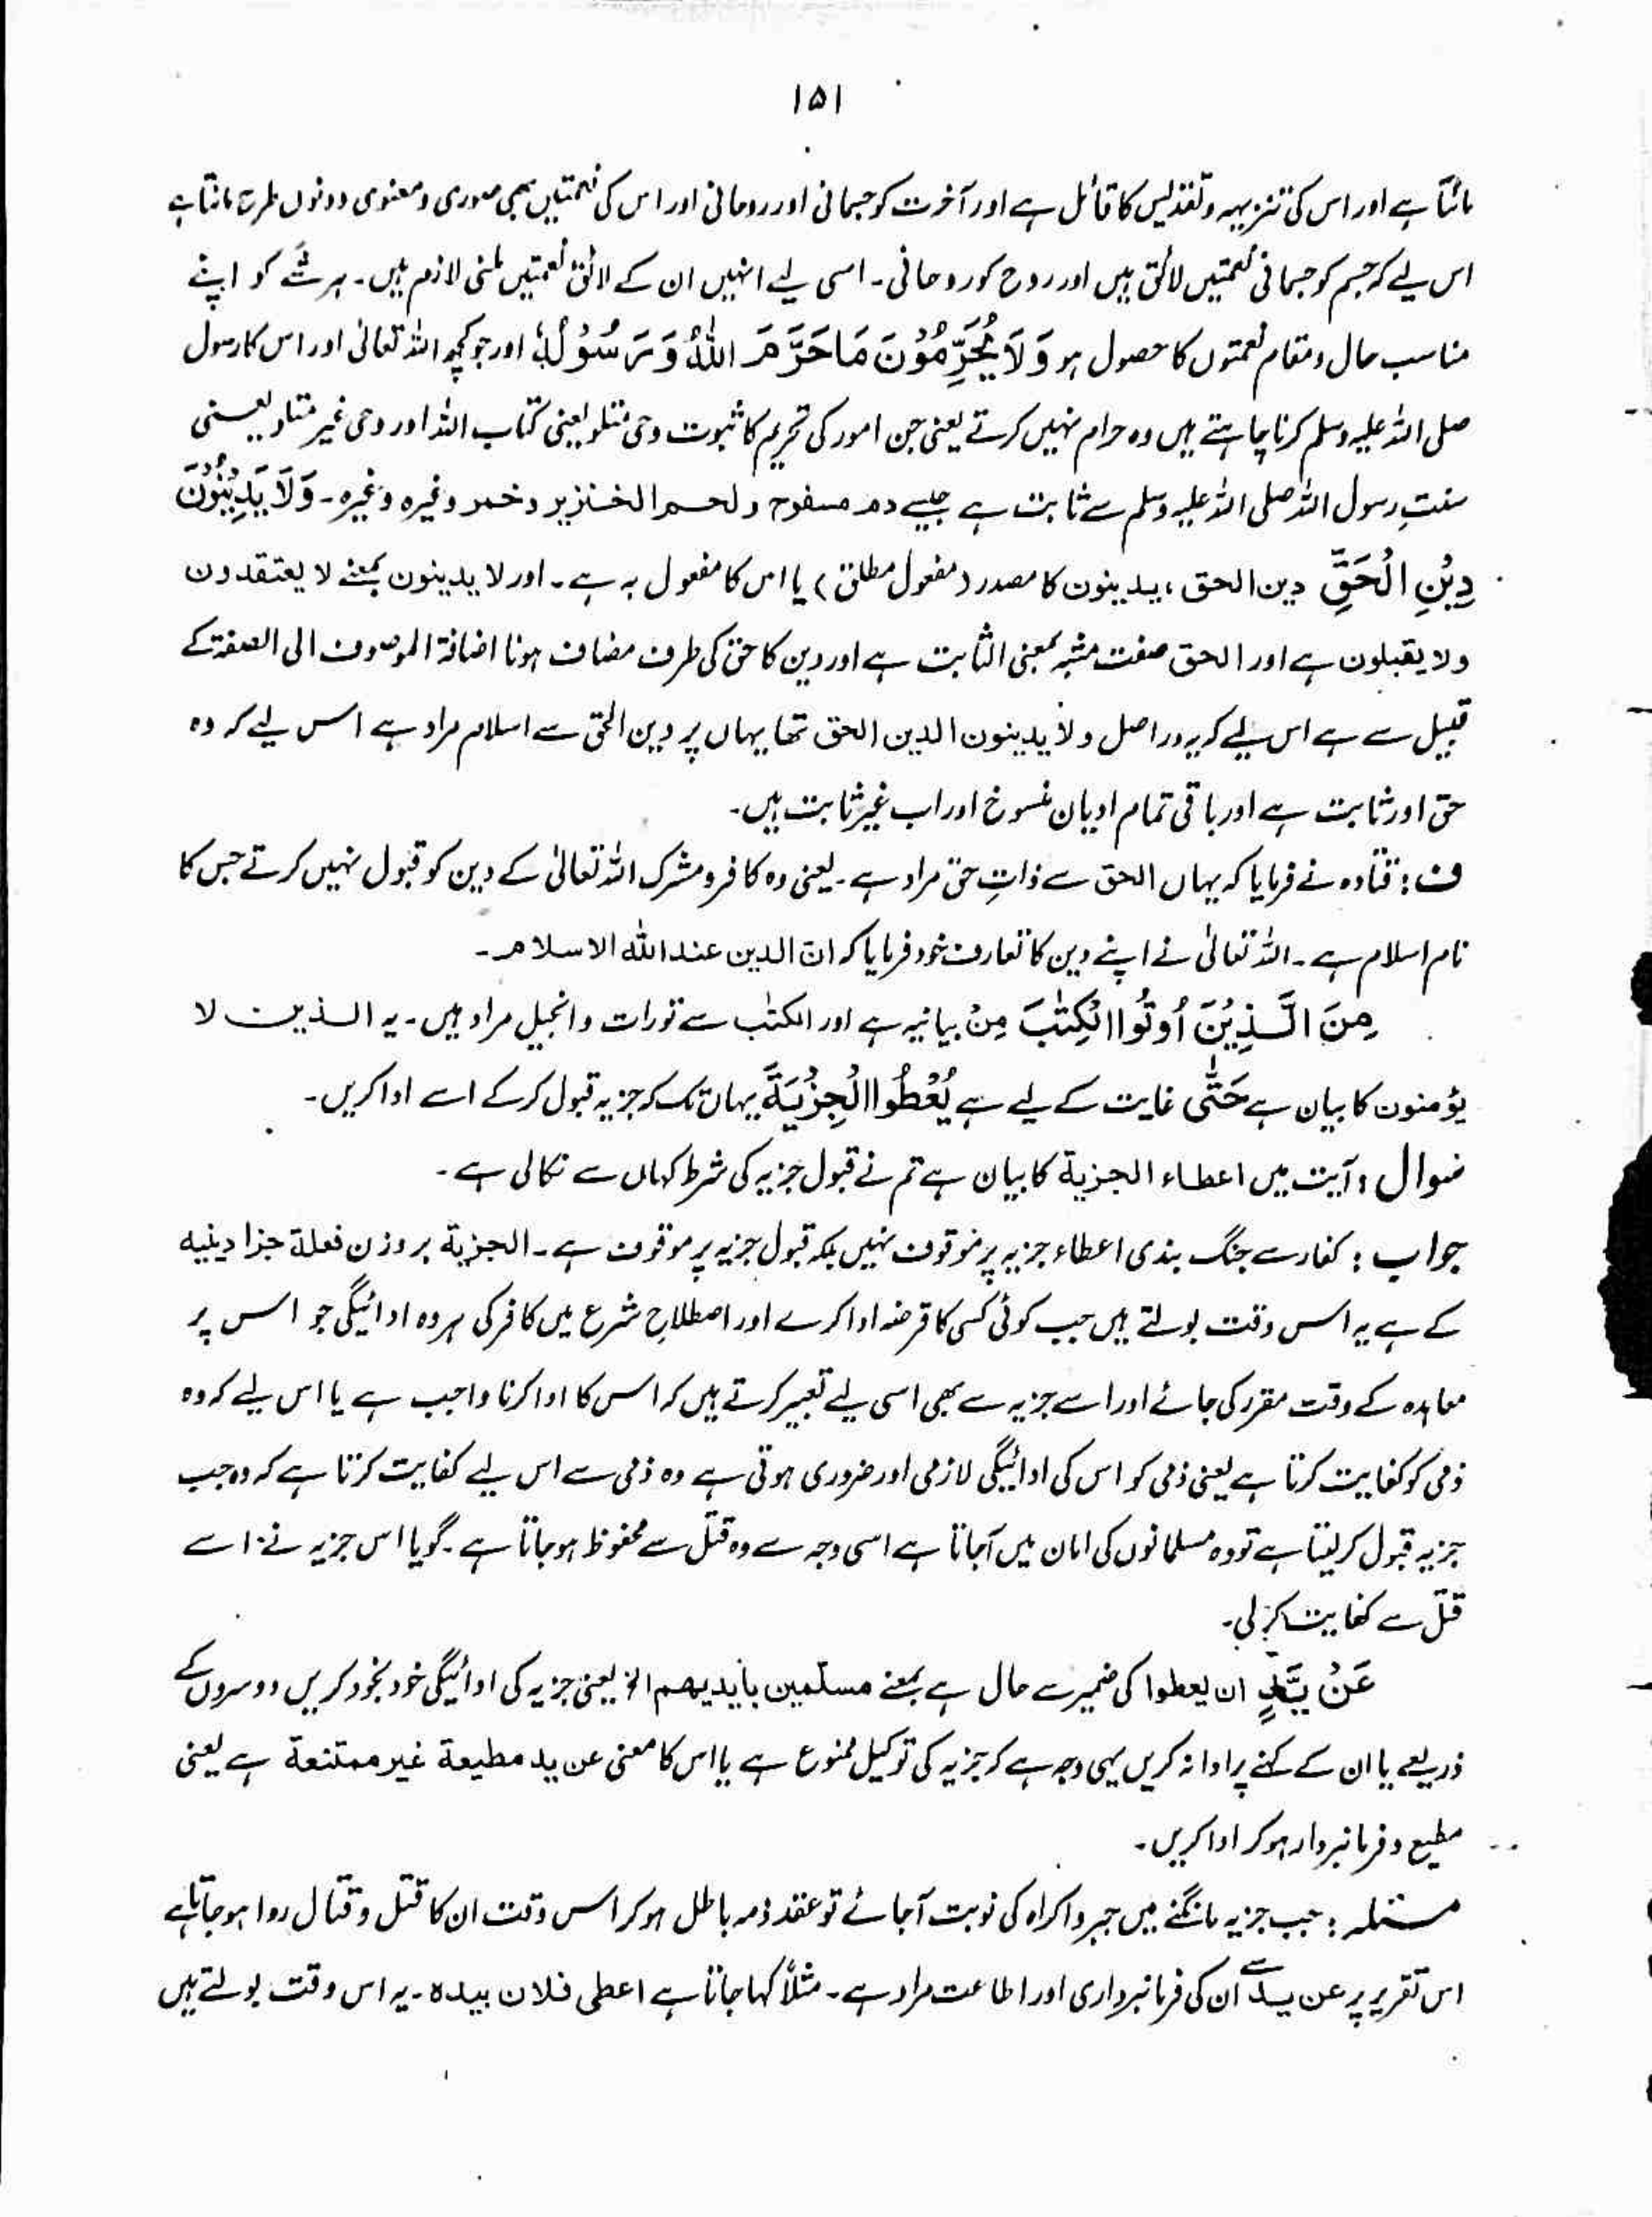 ۱۵۱
مانتا ہے اور اس کی تنزیہہ و تقدیس کا قائل ہے اور آخرت کو جسمانی اور روحانی اور اس کی نعمتیں بھی صوری و معنوی دونوں طرح مانتا ہے
اس لیے کہ جسم کو جسمانی نعمتیں لائق ہیں اور روح کو روحانی۔ اسی لیے انہیں ان کے لائق نعمتیں ملنی لازم ہیں۔ ہر شَے کو اپنے
مناسب حال و مقام نعمتوں کا حصول ہو وَلَا یُحَرِّمُوْنَ مَا حَرَّمَ اللّٰہُ وَرَسُوْلُہٗ اور جو کچھ اللہ تعالیٰ اور اس کا رسول
صلی اللہ علیہ وسلم کرنا چاہتے ہیں وہ حرام نہیں کرتے یعنی جن امور کی تحریم کا ثبوت وحی متلو یعنی کتاب اللہ اور وحی غیر متلو یعنی
سنتِ رسول اللہ صلی اللہ علیہ وسلم سے ثابت ہے جیسے دم مسفوح و لحم الخنزیر و خمر وغیرہ وغیرہ۔ وَلَا یَدِیْنُوْنَ
دِیْنِ الْحَقِّ دین الحق، یدینون کا مصدر (مفعول مطلق) یا اس کا مفعول بہ ہے۔ اور لا یدینون بمعنے لا یعتقدون
ولا یقبلون ہے اور الحق صفت مشبہ بمعنی الثابت ہے اور دین کا حق کی طرف مضاف ہونا اضافۃ الموصوف الی الصفۃ کے
قبیل سے ہے اس لیے کہ یہ دراصل ولا یدینون الدین الحق تھا یہاں پر دین الحق سے اسلام مراد ہے اس لیے کہ وہ
حق اور ثابت ہے اور باقی تمام ادیان منسوخ اور اب غیر ثابت ہیں۔
ف: قتادہ نے فرمایا کہ یہاں الحق سے ذاتِ حق مراد ہے۔ یعنی وہ کافر و مشرک اللہ تعالیٰ کے دین کو قبول نہیں کرتے جس کا
نام اسلام ہے۔ اللہ تعالیٰ نے اپنے دین کا تعارف خود فرمایا کہ ان الدین عند اللہ الاسلام۔
مِنَ الَّذِیْنَ اُوْتُوا الْکِتٰبَ مِنْ بیانیہ ہے اور الکتٰب سے تورات و انجیل مراد ہیں۔ یہ الذین لا
یؤمنون کا بیان ہے حَتّٰی غایت کے لیے ہے یُعْطُوا الْجِزْیَۃَ یہاں تک کہ جزیہ قبول کر کے اسے ادا کریں۔
سوال: آیت میں اعطاء الجزیۃ کا بیان ہے تم نے قبول جزیہ کی شرط کہاں سے نکالی ہے۔
جواب: کفار سے جنگ بندی اعطاء جزیہ پر موقوف نہیں بلکہ قبول جزیہ پر موقوف ہے۔ الجزیۃ بروزن فعلۃ جزا دینیہ
کے ہے یہ اس وقت بولتے ہیں جب کوئی کسی کا قرضہ ادا کرے اور اصطلاحِ شرع میں کافر کی ہر وہ ادائیگی جو اس پر
معاہدہ کے وقت مقرر کی جائے اور اسے جزیہ سے بھی اسی لیے تعبیر کرتے ہیں کہ اس کا ادا کرنا واجب ہے یا اس لیے کہ وہ
ذمی کو کفایت کرتا ہے یعنی ذمی کو اس کی ادائیگی لازمی اور ضروری ہوتی ہے وہ ذمی سے اس لیے کفایت کرتا ہے کہ وہ جب
جزیہ قبول کر لیتا ہے تو وہ مسلمانوں کی امان میں آجاتا ہے اسی وجہ سے وہ قتل سے محفوظ ہو جاتا ہے۔ گویا اس جزیہ نے اسے
قتل سے کفایت کر لی۔
عَنْ یَّدٍ ان یعطوا کی ضمیر سے حال ہے بمعنے مسلمین بایدیھم الخ یعنی جزیہ کی ادائیگی خود بخود کریں دوسروں کے
ذریعے یا ان کے کہنے پر ادا نہ کریں یہی وجہ ہے کہ جزیہ کی توکیل ممنوع ہے یا اس کا معنی عن ید مطیعۃ غیر ممتنعۃ ہے یعنی
مطیع و فرمانبردار ہو کر ادا کریں۔
مسئلہ: جب جزیہ مانگنے میں جبر و اکراہ کی نوبت آجائے تو عقد ذمہ باطل ہو کر اس وقت ان کا قتل و قتال روا ہو جاتا ہے
اس تقریر پر عن ید سے ان کی فرمانبرداری اور اطاعت مراد ہے۔ مثلاً کہا جاتا ہے اعطی فلان بیدہ۔ یہ اس وقت بولتے ہیں